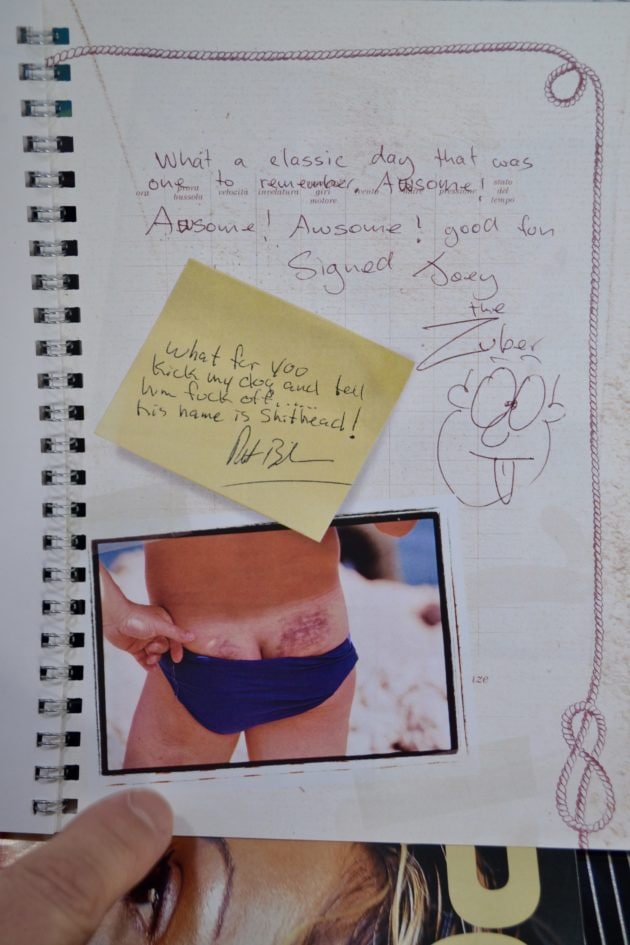 What a classic day that was
one to remember, Awsome!
ora prora bussola velocità invelatura giri motore vento mare pressione stato del tempo
Awsome! Awsome! good fun
Signed Joey
the
Zuber
What for you
kick my dog and tell
him fuck off......
his name is Shithead!
ize